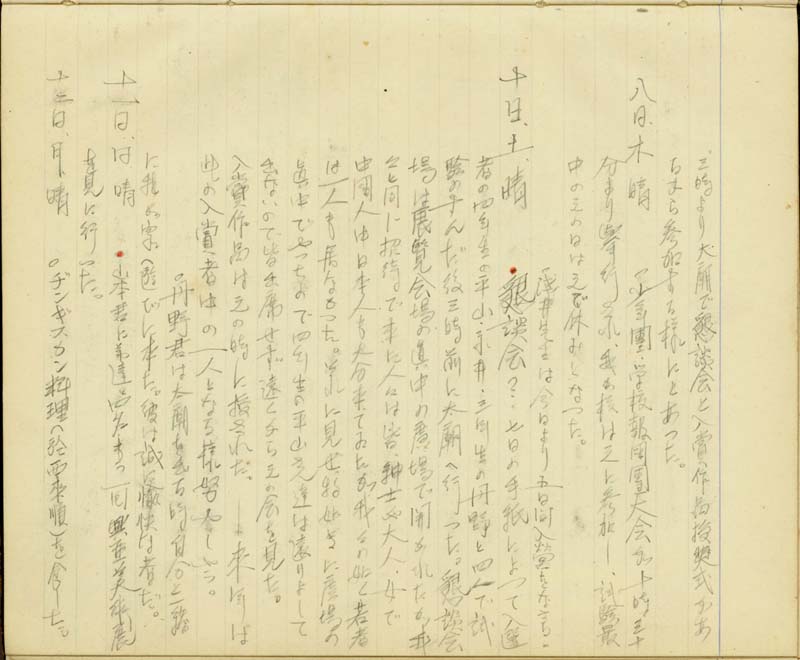 三時より大廟で懇談会と入賞作品授奨式があ
るから参加する様にとあつた。
八日、木 晴 少年團・学校報国團大会が十時三十
分より擧行され、我が校は之に参加し、試験最
中の之の日は之で休みとなつた。
十日、土、晴 先生は今日より五日間入營をなさる。
懇談会?・七日の手紙によつて入選
者の四年生の平山・永井・三年生の丹野と四人で試
験のすんだ後三時前に大廟へ行つた。懇談会
場は展覧会場の眞中の廣場で開かれたが我
々と同に招待で来た人々は皆、紳士や大人・女で
中国人中日本人も大分来てゐたが我々の如き若者
は一人も居なかつた。見せ物の如きに廣場の
眞中でやつたので四年生の平山先達は遠りよして
出ないので皆出席せず、遠くから之の会を見た。
入賞作品は之の時に授された。――来年は
此の入賞者中の一人となる様努めやう。
丹野君は太廟を出る時自分と一緒
に我が家へ遊びに来た。彼は誠に愉快な者だ。
十一日、日 晴 山本君に弟達四名まつ同興亜美術展
を見に行つた。
十二日、月、晴 ジンギスカン料理を食した。